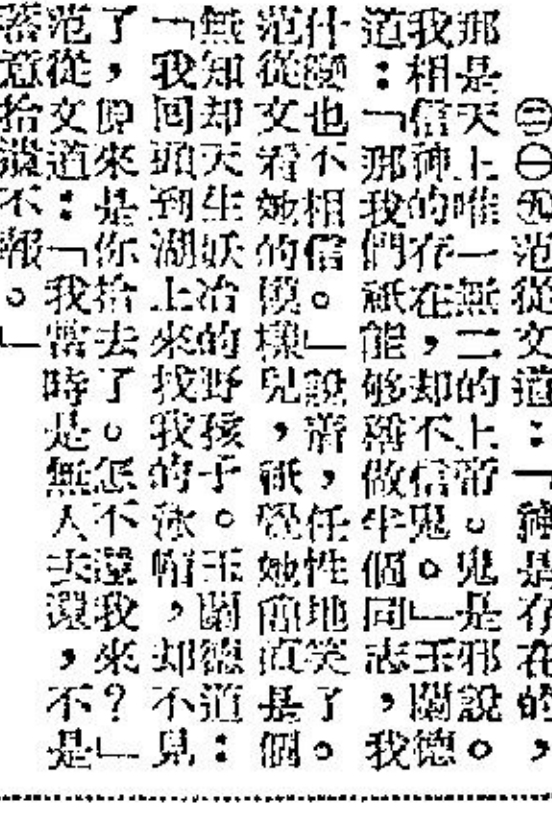 ㊁㊀㊈范從文道：「神是存在的，
那是天上的唯一無二的上帝。鬼是邪說。
我相信神的存在，却不信鬼。」王關德
道：「那我們祇能够稱做半個同志，我
什麼也不相信。」說着，任性地笑了。
范從文看她的模樣兒，祇覺她簡直是個
無知却天生妖冶的野孩子。王關德道：
「我回頭到湖上來找我的泳帽，却不見
了，卽來是你拾去了。怎不還我來？」
范從文道：「我當時是無人去還，不是
蓄意拾遺不報。」